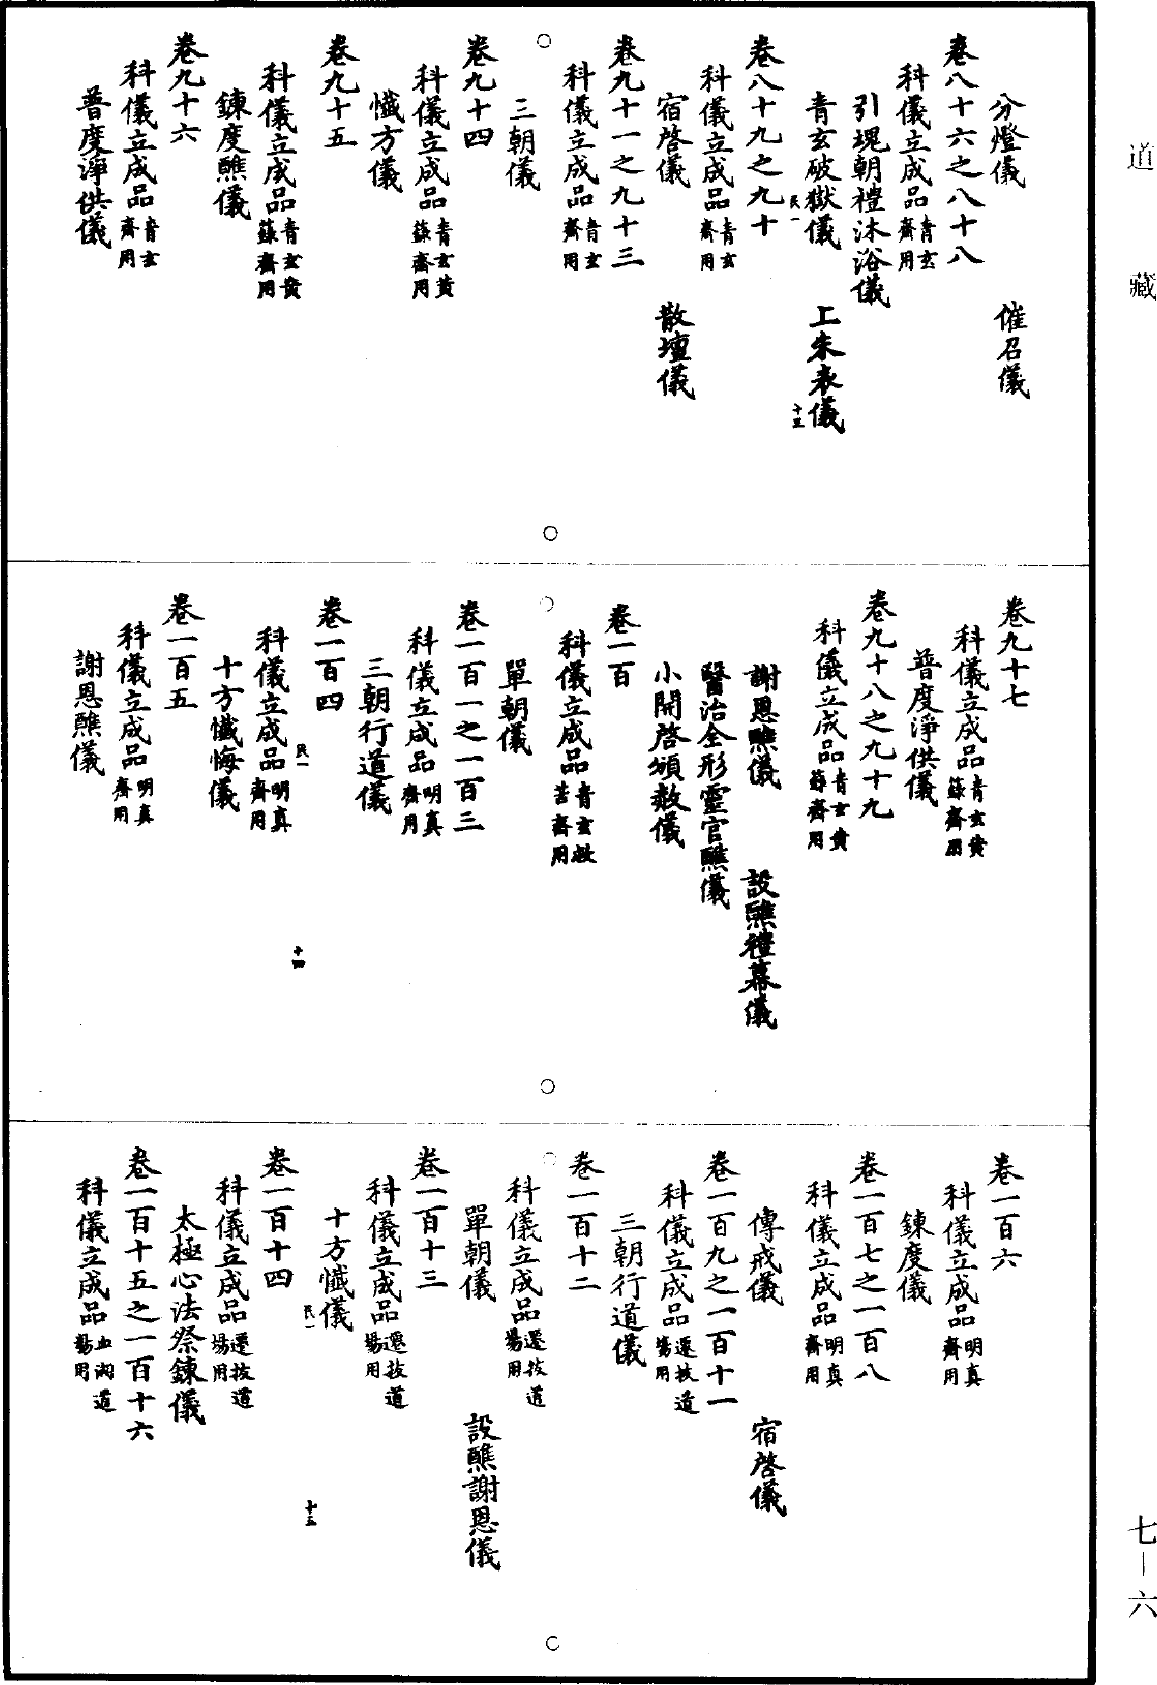 道藏
七—六
分燈儀　催召儀
卷八十六之八十八
科儀立成品青玄齋用
引魂朝禮沐浴儀
青玄破獄儀　上朱表儀
民一　十三
卷八十九之九十
科儀立成品青玄齋用
宿啓儀　散壇儀
卷九十一之九十三
科儀立成品青玄齋用
三朝儀
卷九十四
科儀立成品青玄黃籙齋用
懺方儀
卷九十五
科儀立成品青玄黃籙齋用
鍊度醮儀
卷九十六
科儀立成品青玄齋用
普度淨供儀
卷九十七
科儀立成品青玄黃籙齋用
普度淨供儀
卷九十八之九十九
科儀立成品青玄黃籙齋用
謝恩醮儀　設醮禮幕儀
醫治全形靈官醮儀
小開啓頒赦儀
卷一百
科儀立成品青玄救苦齋用
單朝儀
卷一百一之一百三
科儀立成品明真齋用
三朝行道儀
卷一百四
民一　十四
科儀立成品明真齋用
十方懺悔儀
卷一百五
科儀立成品明真齋用
謝恩醮儀
卷一百六
科儀立成品明真齋用
鍊度儀
卷一百七之一百八
科儀立成品明真齋用
傳戒儀　宿啓儀
卷一百九之一百十一
科儀立成品遷拔道場用
三朝行道儀
卷一百十二
科儀立成品遷拔道場用
單朝儀　設醮謝恩儀
卷一百十三
科儀立成品遷拔道場用
十方懺儀
民一　十五
卷一百十四
科儀立成品遷拔道場用
太極心法祭鍊儀
卷一百十五之一百十六
科儀立成品血湖道場用